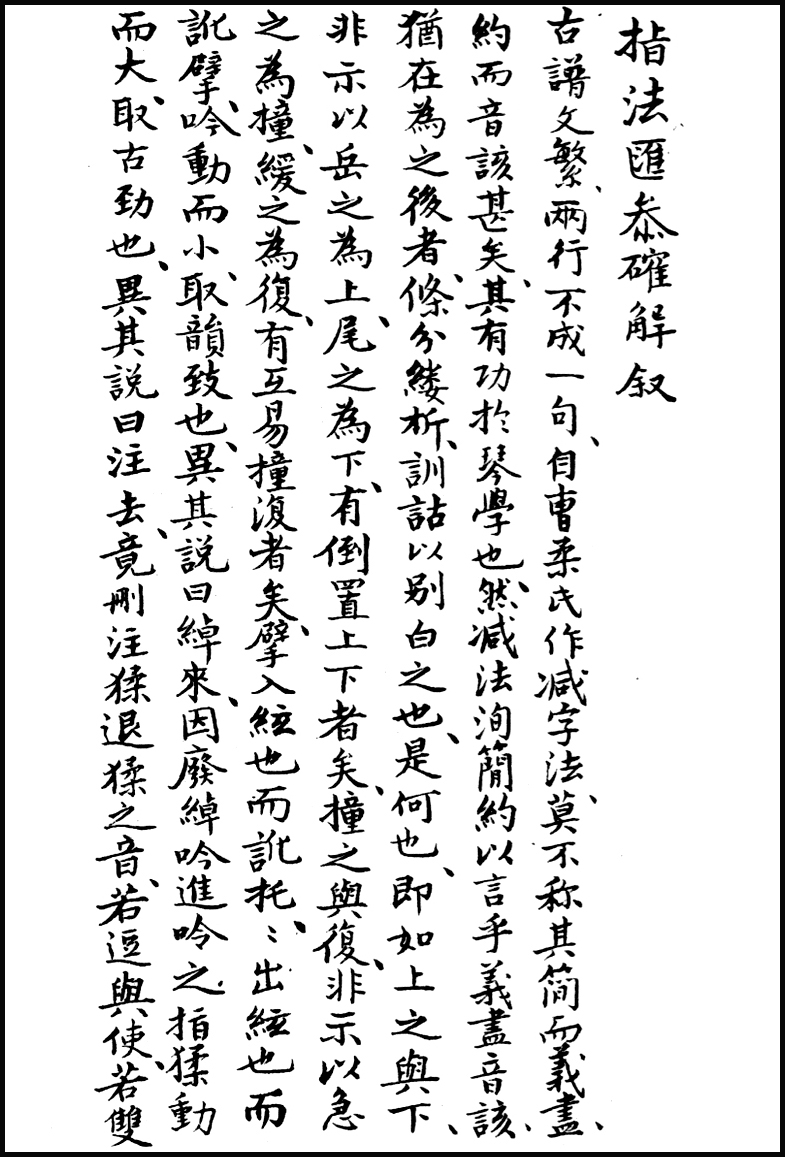 指法匯叅確解叙
古譜文繁、兩行不成一句、自曹柔氏作减字法、莫不称其简而義盡、
約而音該甚矣、其有功於琴學也、然减法洵簡約以言乎義盡音該、
猶在為之後者、條分縷析、訓詁以别白之也、是何也、即如上之與下、
非示以岳之為上、尾之為下、有倒置上下者矣、撞之與復、非示以急
之為撞、緩之為復、有互易撞復者矣、擘入絃也而訛托、〻出絃也而
訛擘、吟動而小、取韻致也、異其說曰綽來、因廢綽吟進吟之指猱動
而大、取古勁也、異其說曰注去、竟刪注猱退猱之音、若逗與使、若雙